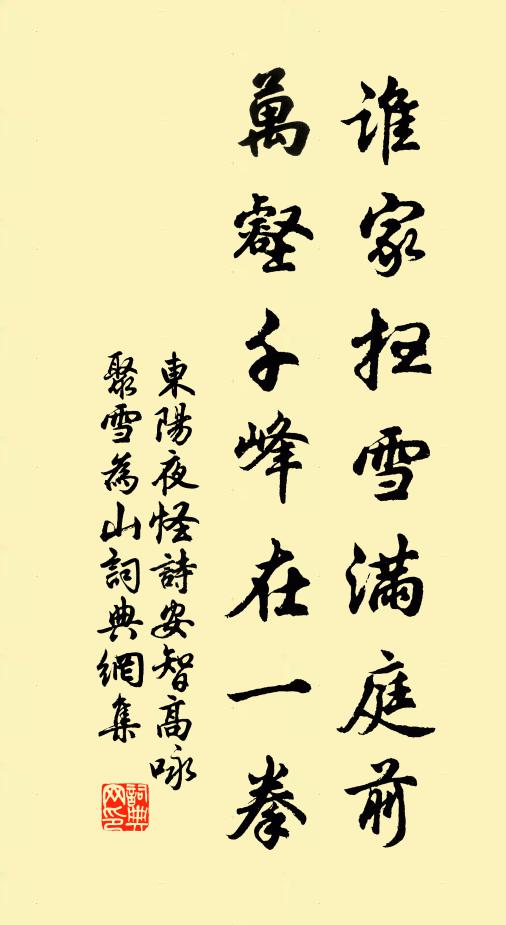 谁家扫雪满庭前
萬壑千峰在一拳
東陽夜怪詩安智高咏
聚雪為山詞典網集
詞典
网印